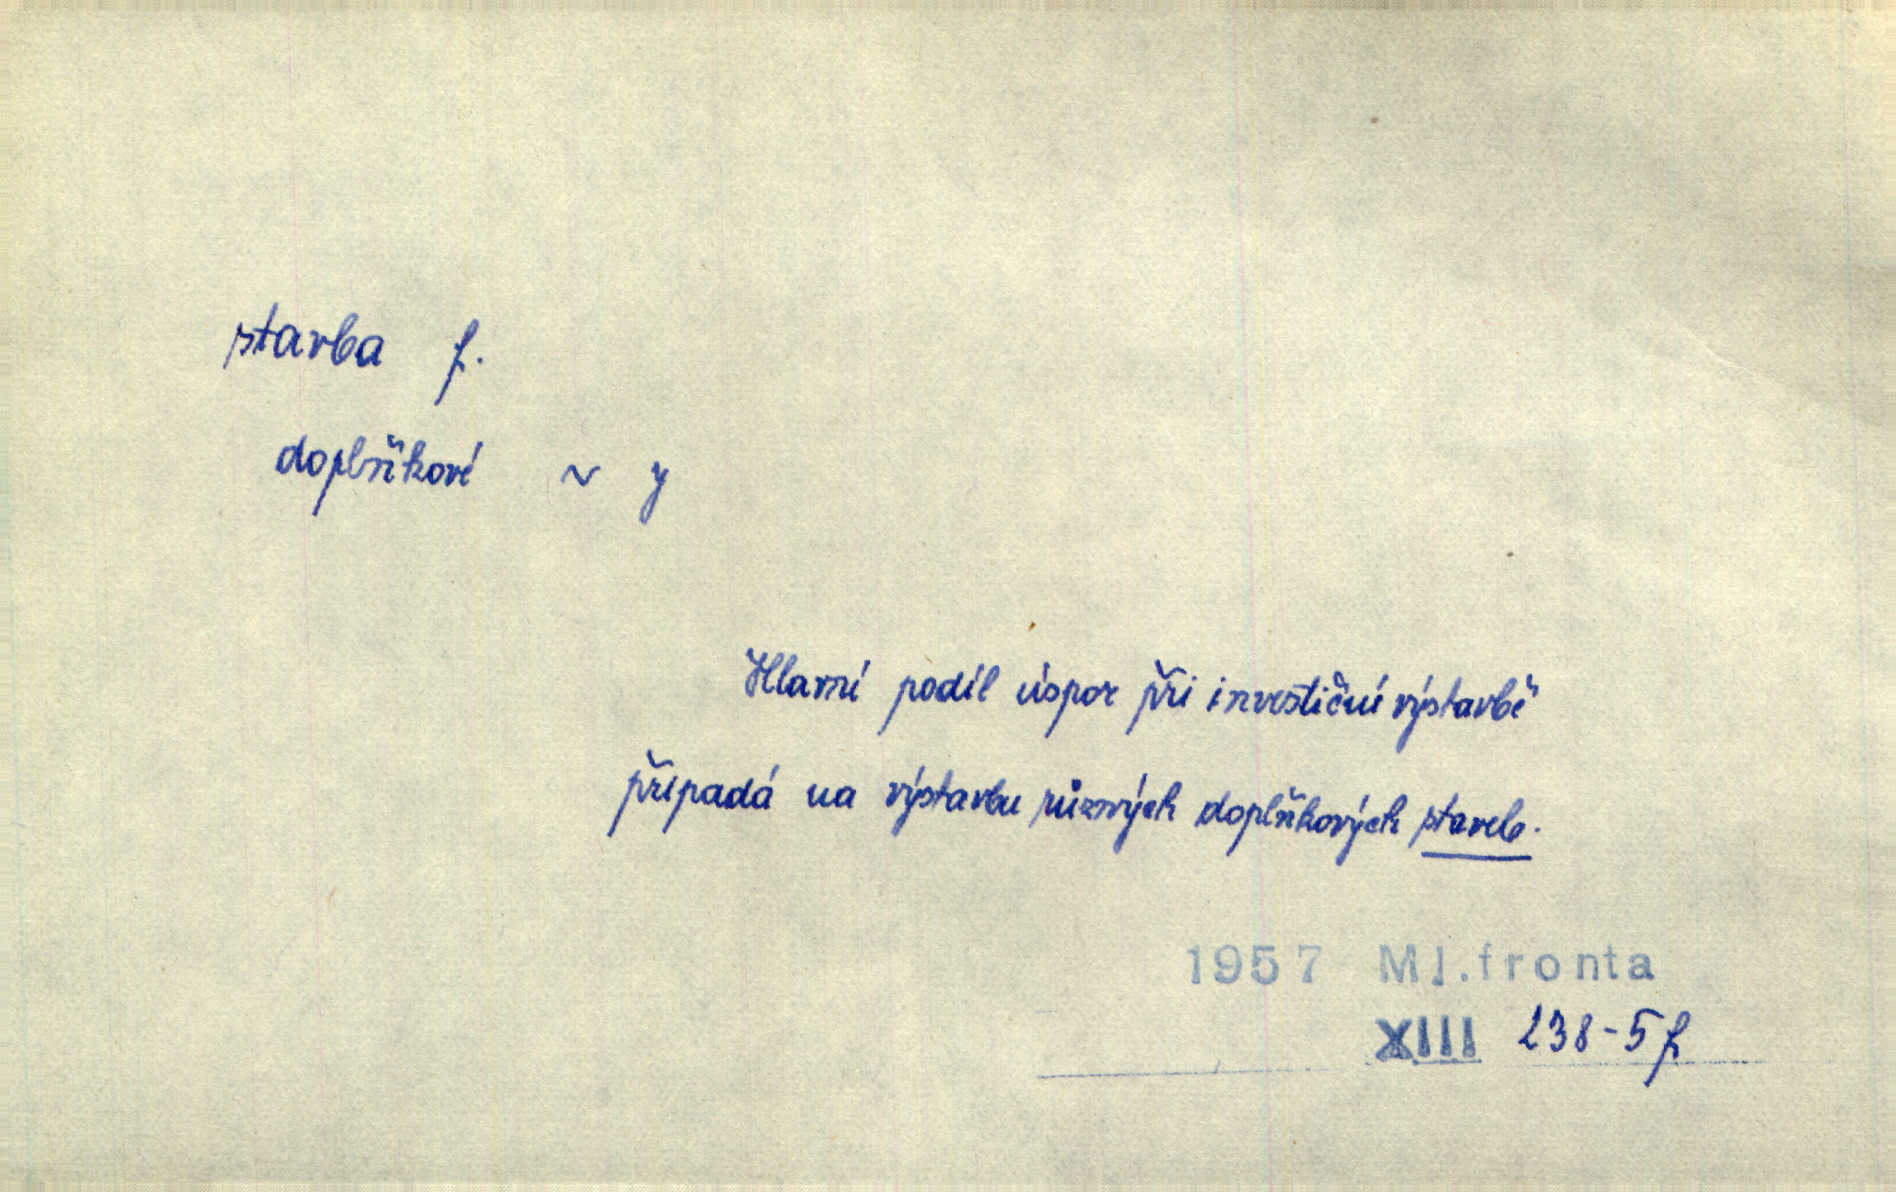 stavba f.
doplňkové ~ y
Hlavní podíl úspor při investiční výstavbě
připadá na výstavbu různých doplňkových staveb.
1957 Ml.fronta
XIII 238-5 f